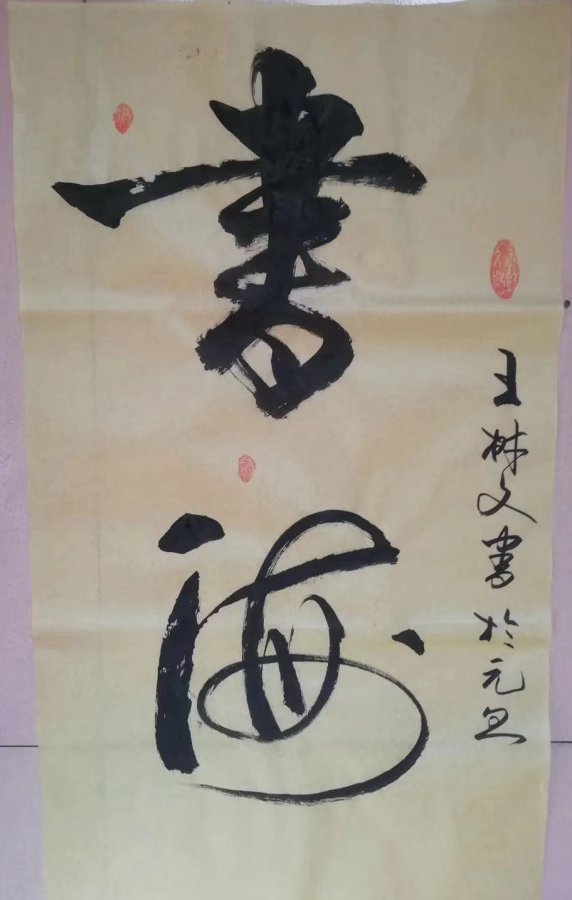 書海
王林文書於元旦